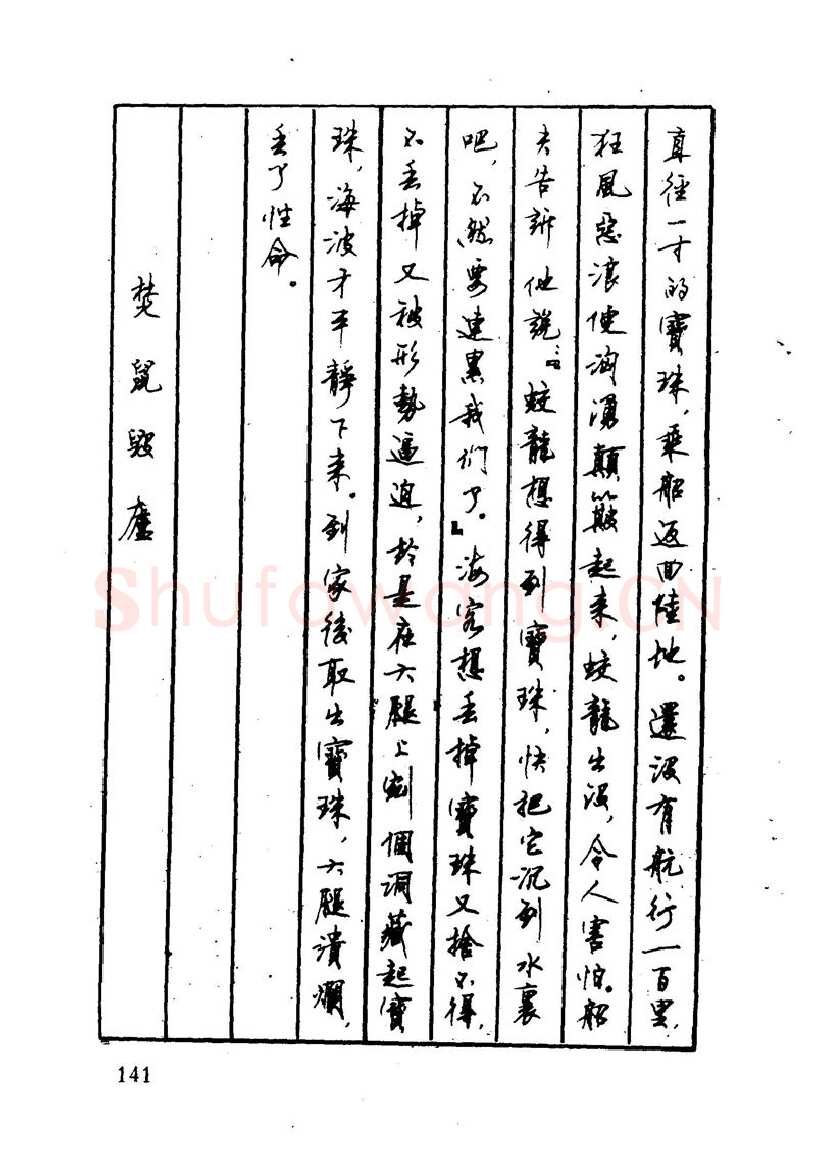 直徑一寸的寶珠，乘船返回陸地。還没有航行一百里，
狂風惡浪便洶湧顛簸起來，蛟龍出没，令人害怕。船
夫告訴他說：『蛟龍想得到寶珠，快把它沉到水裏
吧，不然要連累我們了。』海客想丢掉寶珠又捨不得，
不丢掉又被形勢逼迫，於是在大腿上剜個洞藏起寶
珠，海波才平靜下来。到家後取出寶珠，大腿潰爛，
丢了性命。
焚鼠毁廬
141
Shufawang.CN